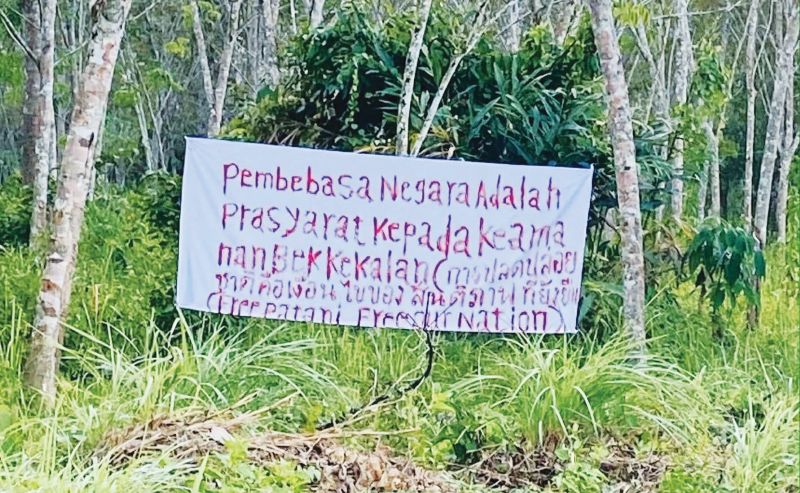 Pembebasa Negara Adalah
Prasyarat Kepada Keama
nan Bekkekalan (การปลดปล่อย
ชาติคือเงื่อนไขของสันติภาพที่ยั่งยืน
(Free Patani Free our Nation)